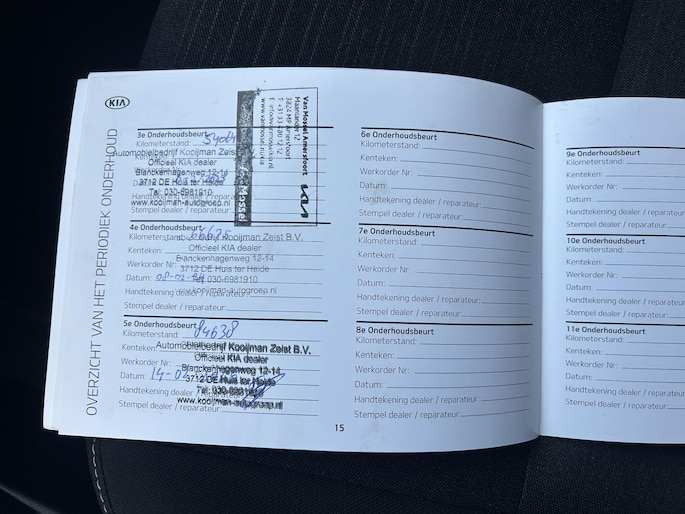 KIA
OVERZICHT VAN HET PERIODIEK ONDERHOUD
3e Onderhoudsbeurt
Kilometerstand:
Automobielbedrijf Kooijman Zeist B.V.
Officieel KIA dealer
Kenteken:
Blanckenhagenweg 12-14
3712 DE Huis ter Heide
Datum:
Tel: 030-6981910
Handtekening dealer / reparateur:
www.kooijman-autogroep.nl
Stempel dealer / reparateur:
Van Mossel Amersfoort
Maanlander 12
3824 MP Amersfoort
KIA
Van Mossel
4e Onderhoudsbeurt
Kilometerstand: 66635
Kooijman Zeist B.V.
Officieel KIA dealer
Kenteken:
Blanckenhagenweg 12-14
Werkorder Nr:
3712 DE Huis ter Heide
Datum: 08-02-
Tel: 030-6981910
Handtekening dealer / reparateur:
www.kooijman-autogroep.nl
Stempel dealer / reparateur:
5e Onderhoudsbeurt
Kilometerstand: 84638
Automobielbedrijf Kooijman Zeist B.V.
Kenteken:
Officieel KIA dealer
Werkorder Nr:
Blanckenhagenweg 12-14
3712 DE Huis ter Heide
Datum: 14-0
Tel: 030-6981910
Handtekening dealer / reparateur:
www.kooijman-autogroep.nl
Stempel dealer / reparateur:
15
6e Onderhoudsbeurt
Kilometerstand:
Kenteken:
Werkorder Nr:
Datum:
Handtekening dealer / reparateur:
Stempel dealer / reparateur:
7e Onderhoudsbeurt
Kilometerstand:
Kenteken:
Werkorder Nr:
Datum:
Handtekening dealer / reparateur:
Stempel dealer / reparateur:
8e Onderhoudsbeurt
Kilometerstand:
Kenteken:
Werkorder Nr:
Datum:
Handtekening dealer / reparateur:
Stempel dealer / reparateur:
9e Onderhoudsbeurt
Kilometerstand:
Kenteken:
Werkorder Nr:
Datum:
Handtekening dealer / rep
Stempel dealer / reparate
10e Onderhoudsbeurt
Kilometerstand:
Kenteken:
Werkorder Nr:
Datum:
Handtekening dealer / rep
Stempel dealer / reparat
11e Onderhoudsbeurt
Kilometerstand:
Kenteken:
Werkorder Nr:
Datum:
Handtekening dealer / re
Stempel dealer / repara